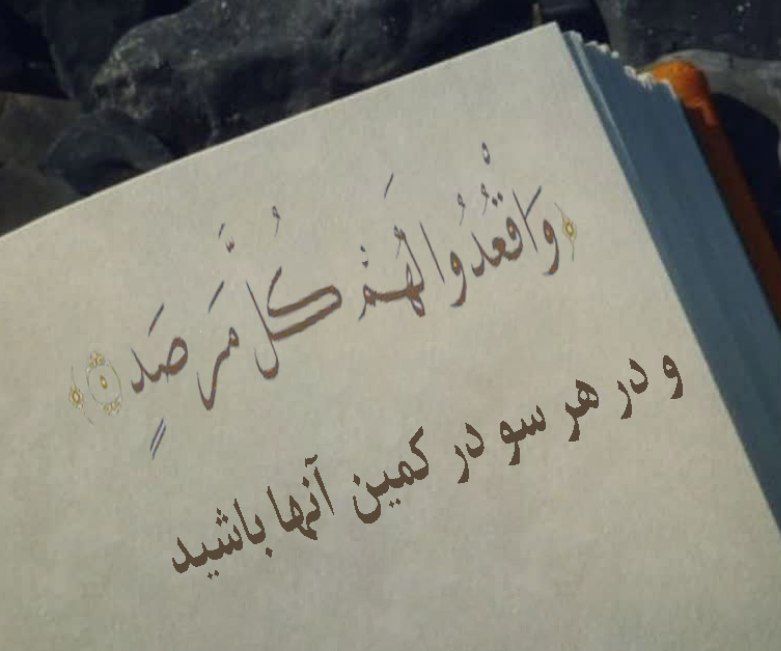 ﴿وَاقْعُدُوا لَهُمْ كُلَّ مَرْصَدٍ ۝٥﴾
و در هر سو در کمین آنها باشید